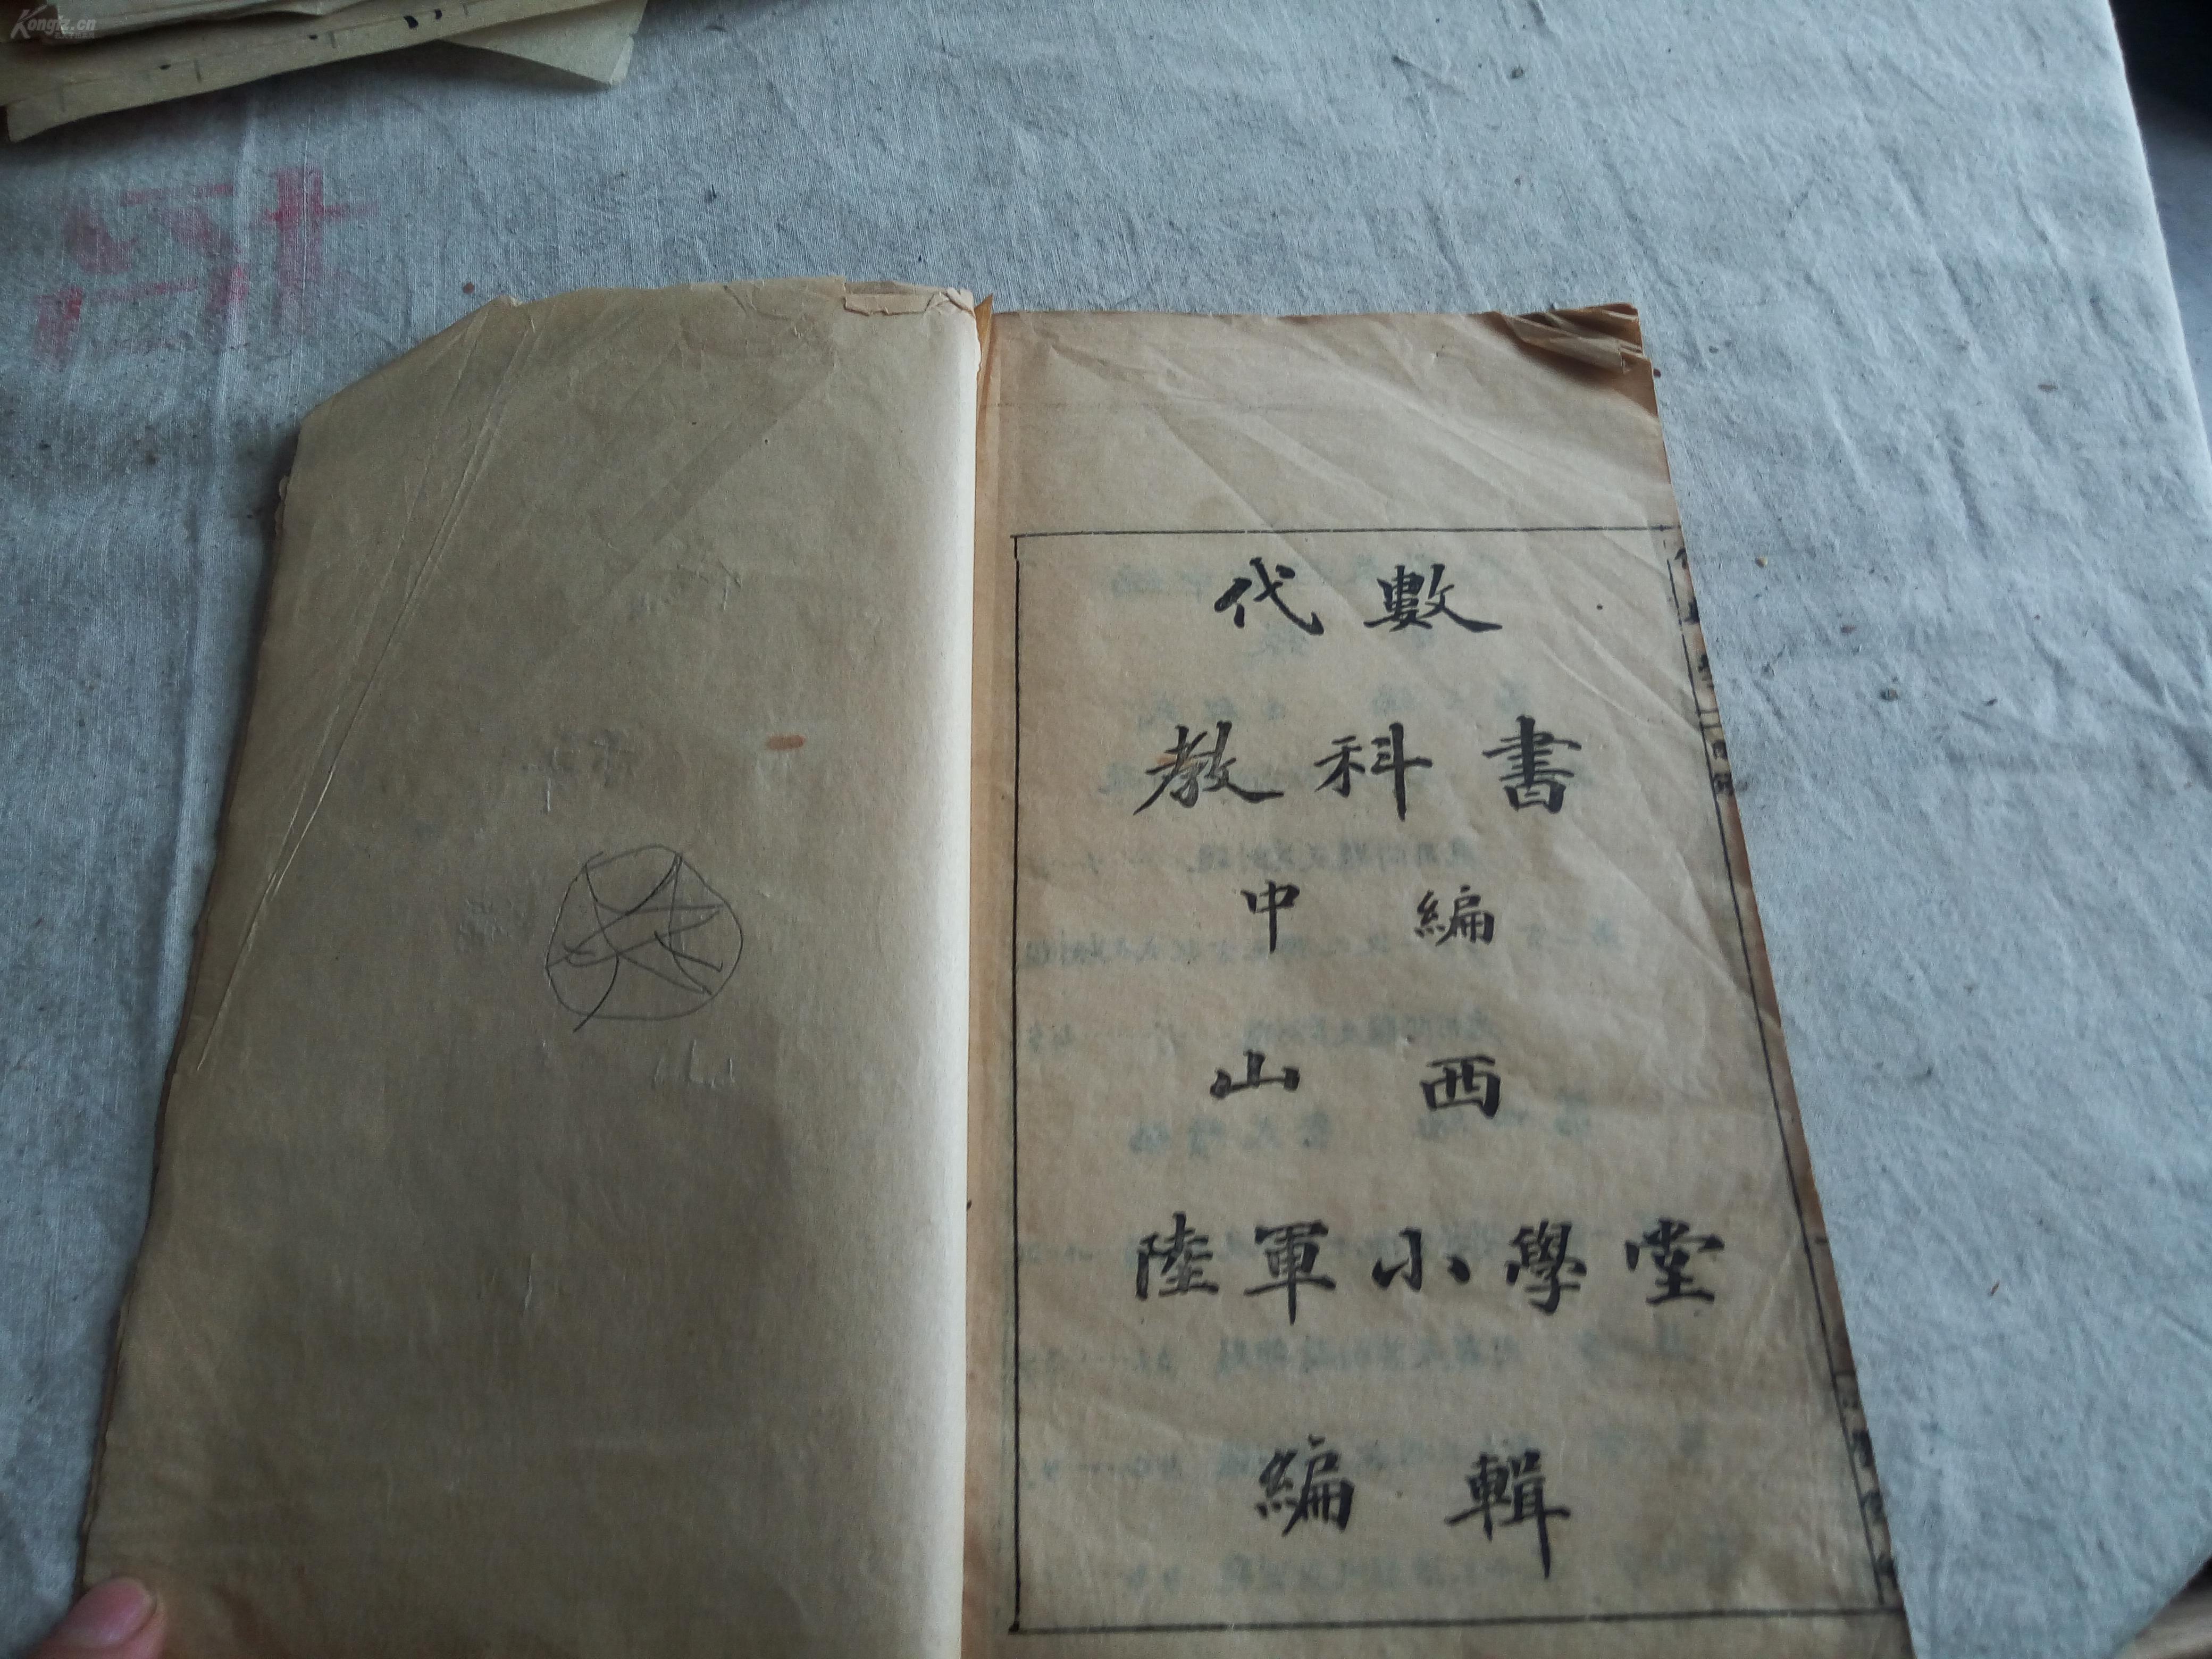 Kongfz.cn
代數
教科書
中編
山西
陸軍小學堂
編輯